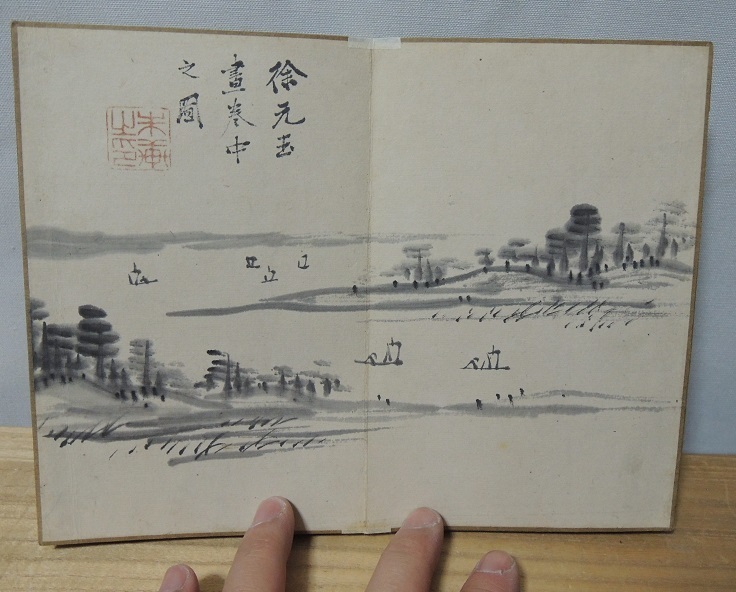 徐元玉
畫卷中
之圖